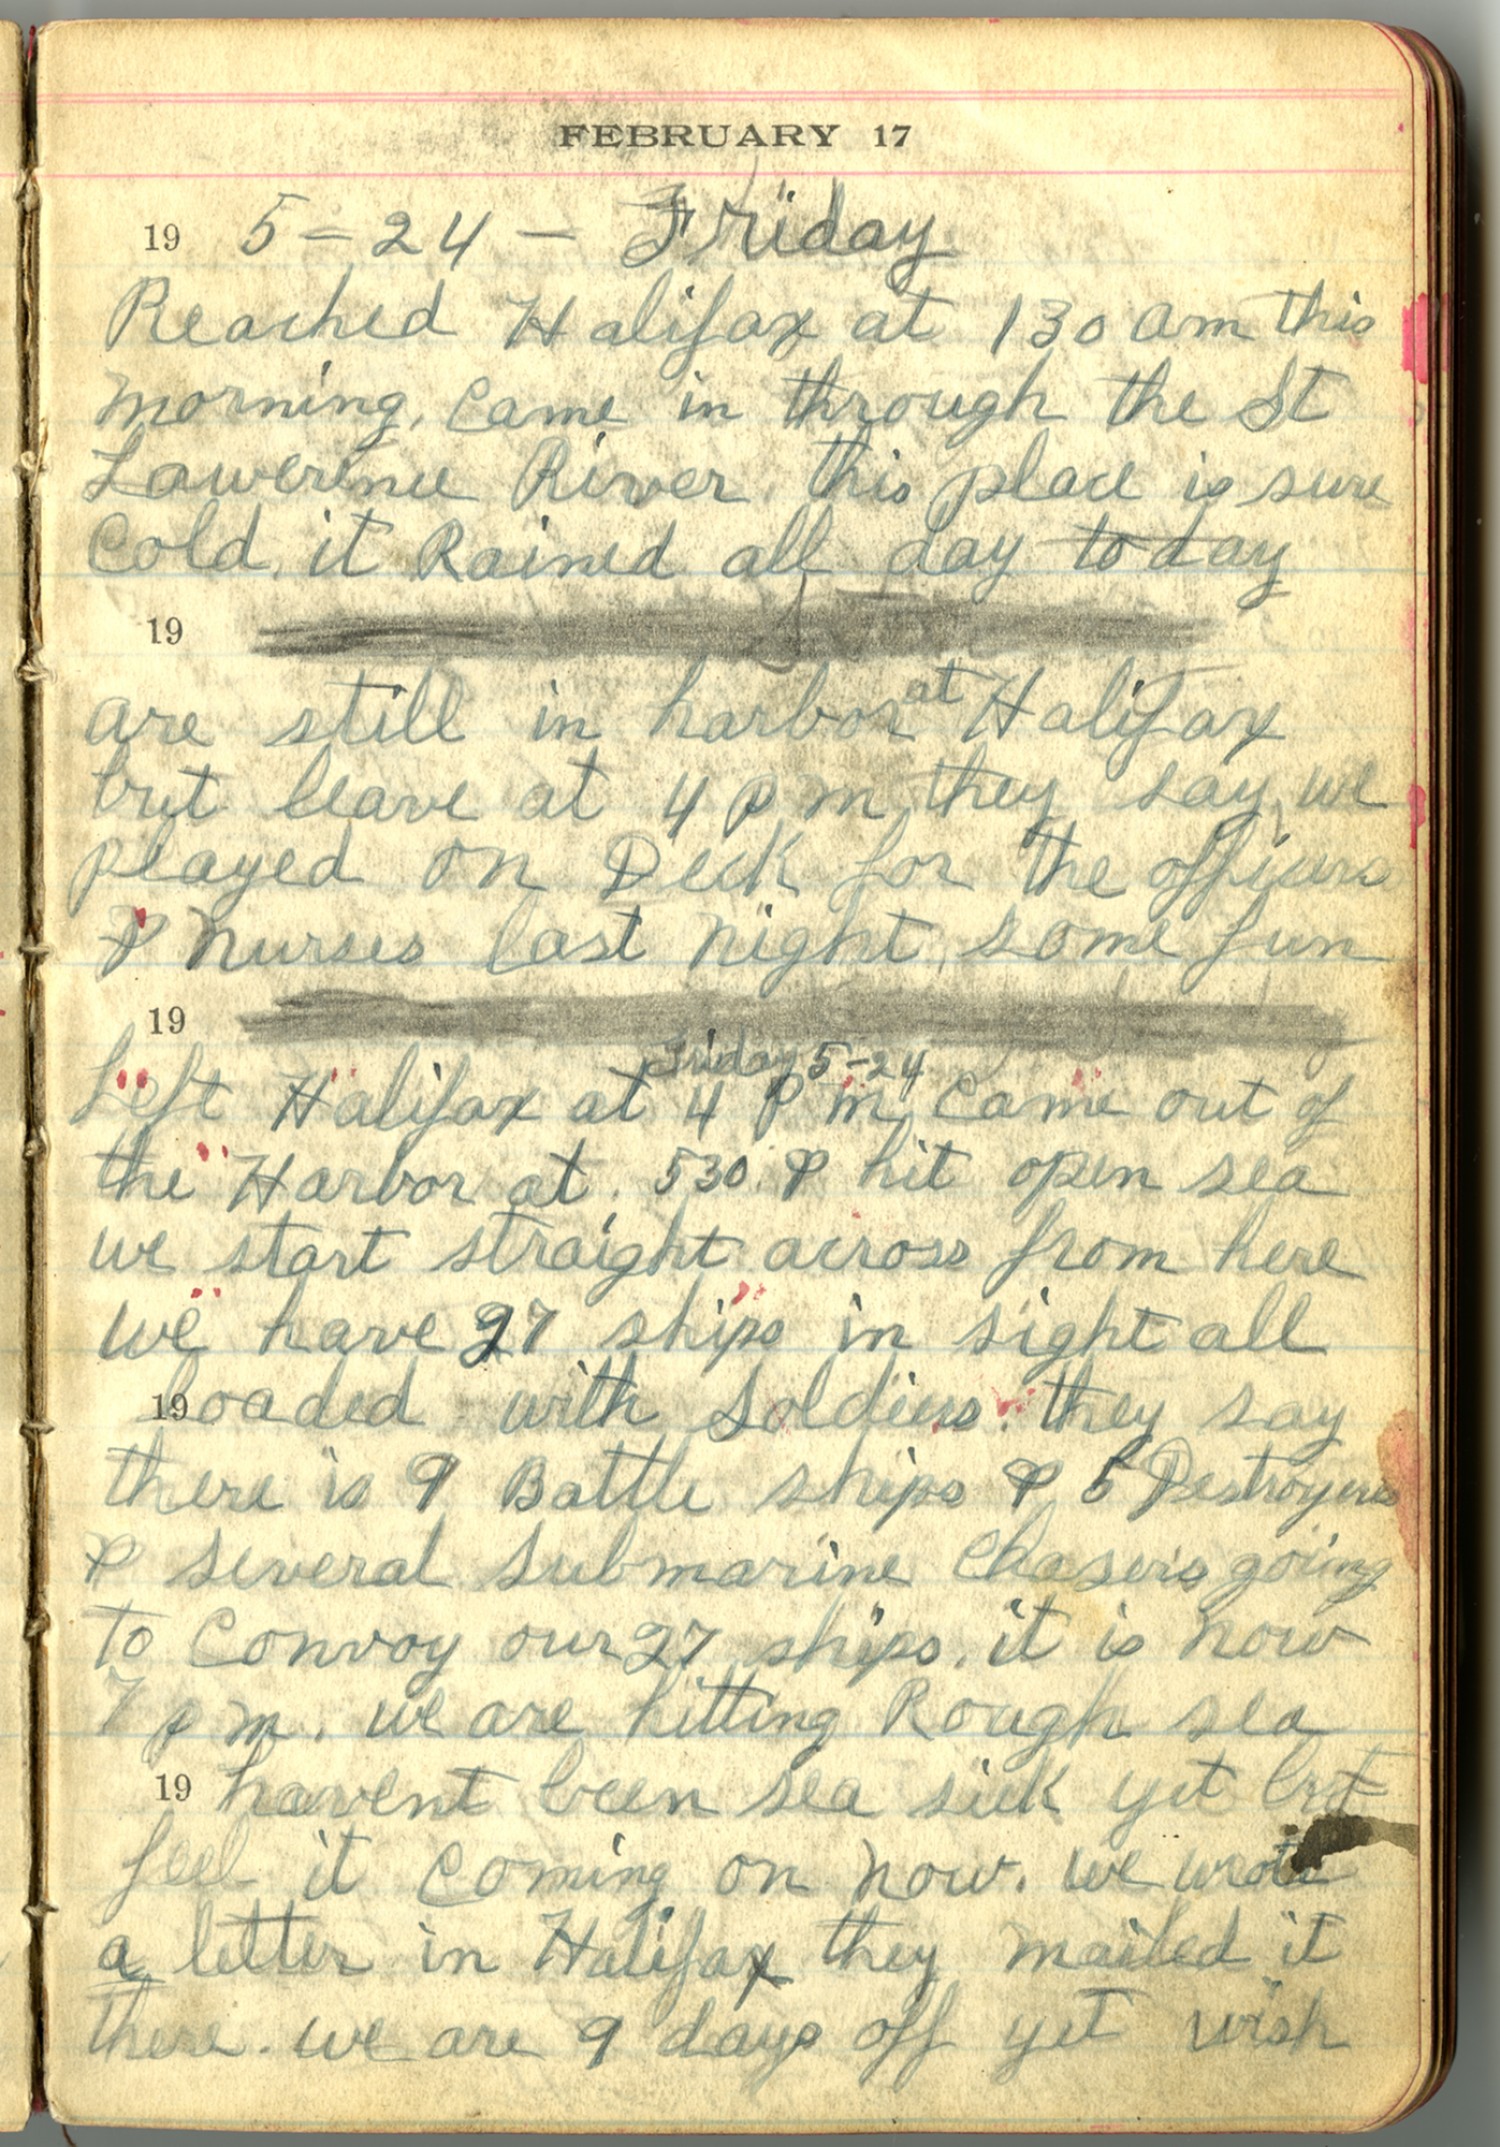 FEBRUARY 17
19 5-24- Friday
Reached Halifax at 130 am this
morning, Came in through the St
Lawerence River, this place is sure
Cold, it Rained all day today
19
are still in harbor at Halifax
but leave at 4 pm, they say, we
played on Deck for the officers
& Nurses last night, some fun
19
Friday 5-24
Left Halifax at 4 P m, Came out of
the Harbor at. 530. & hit open sea
we start straight across from here
we have 27 ships in sight all
19 loaded with Soldiers. they say
there is 9 Battle ships & 5 Destroyers
& several submarine Chasers going
to Convoy our 27 ships. it is now
7 p m. we are hitting Rough sea
19 havent been sea sick yet but
feel it Coming on now. we wrote
a letter in Halifax they mailed it
there. we are 9 days off yet wish